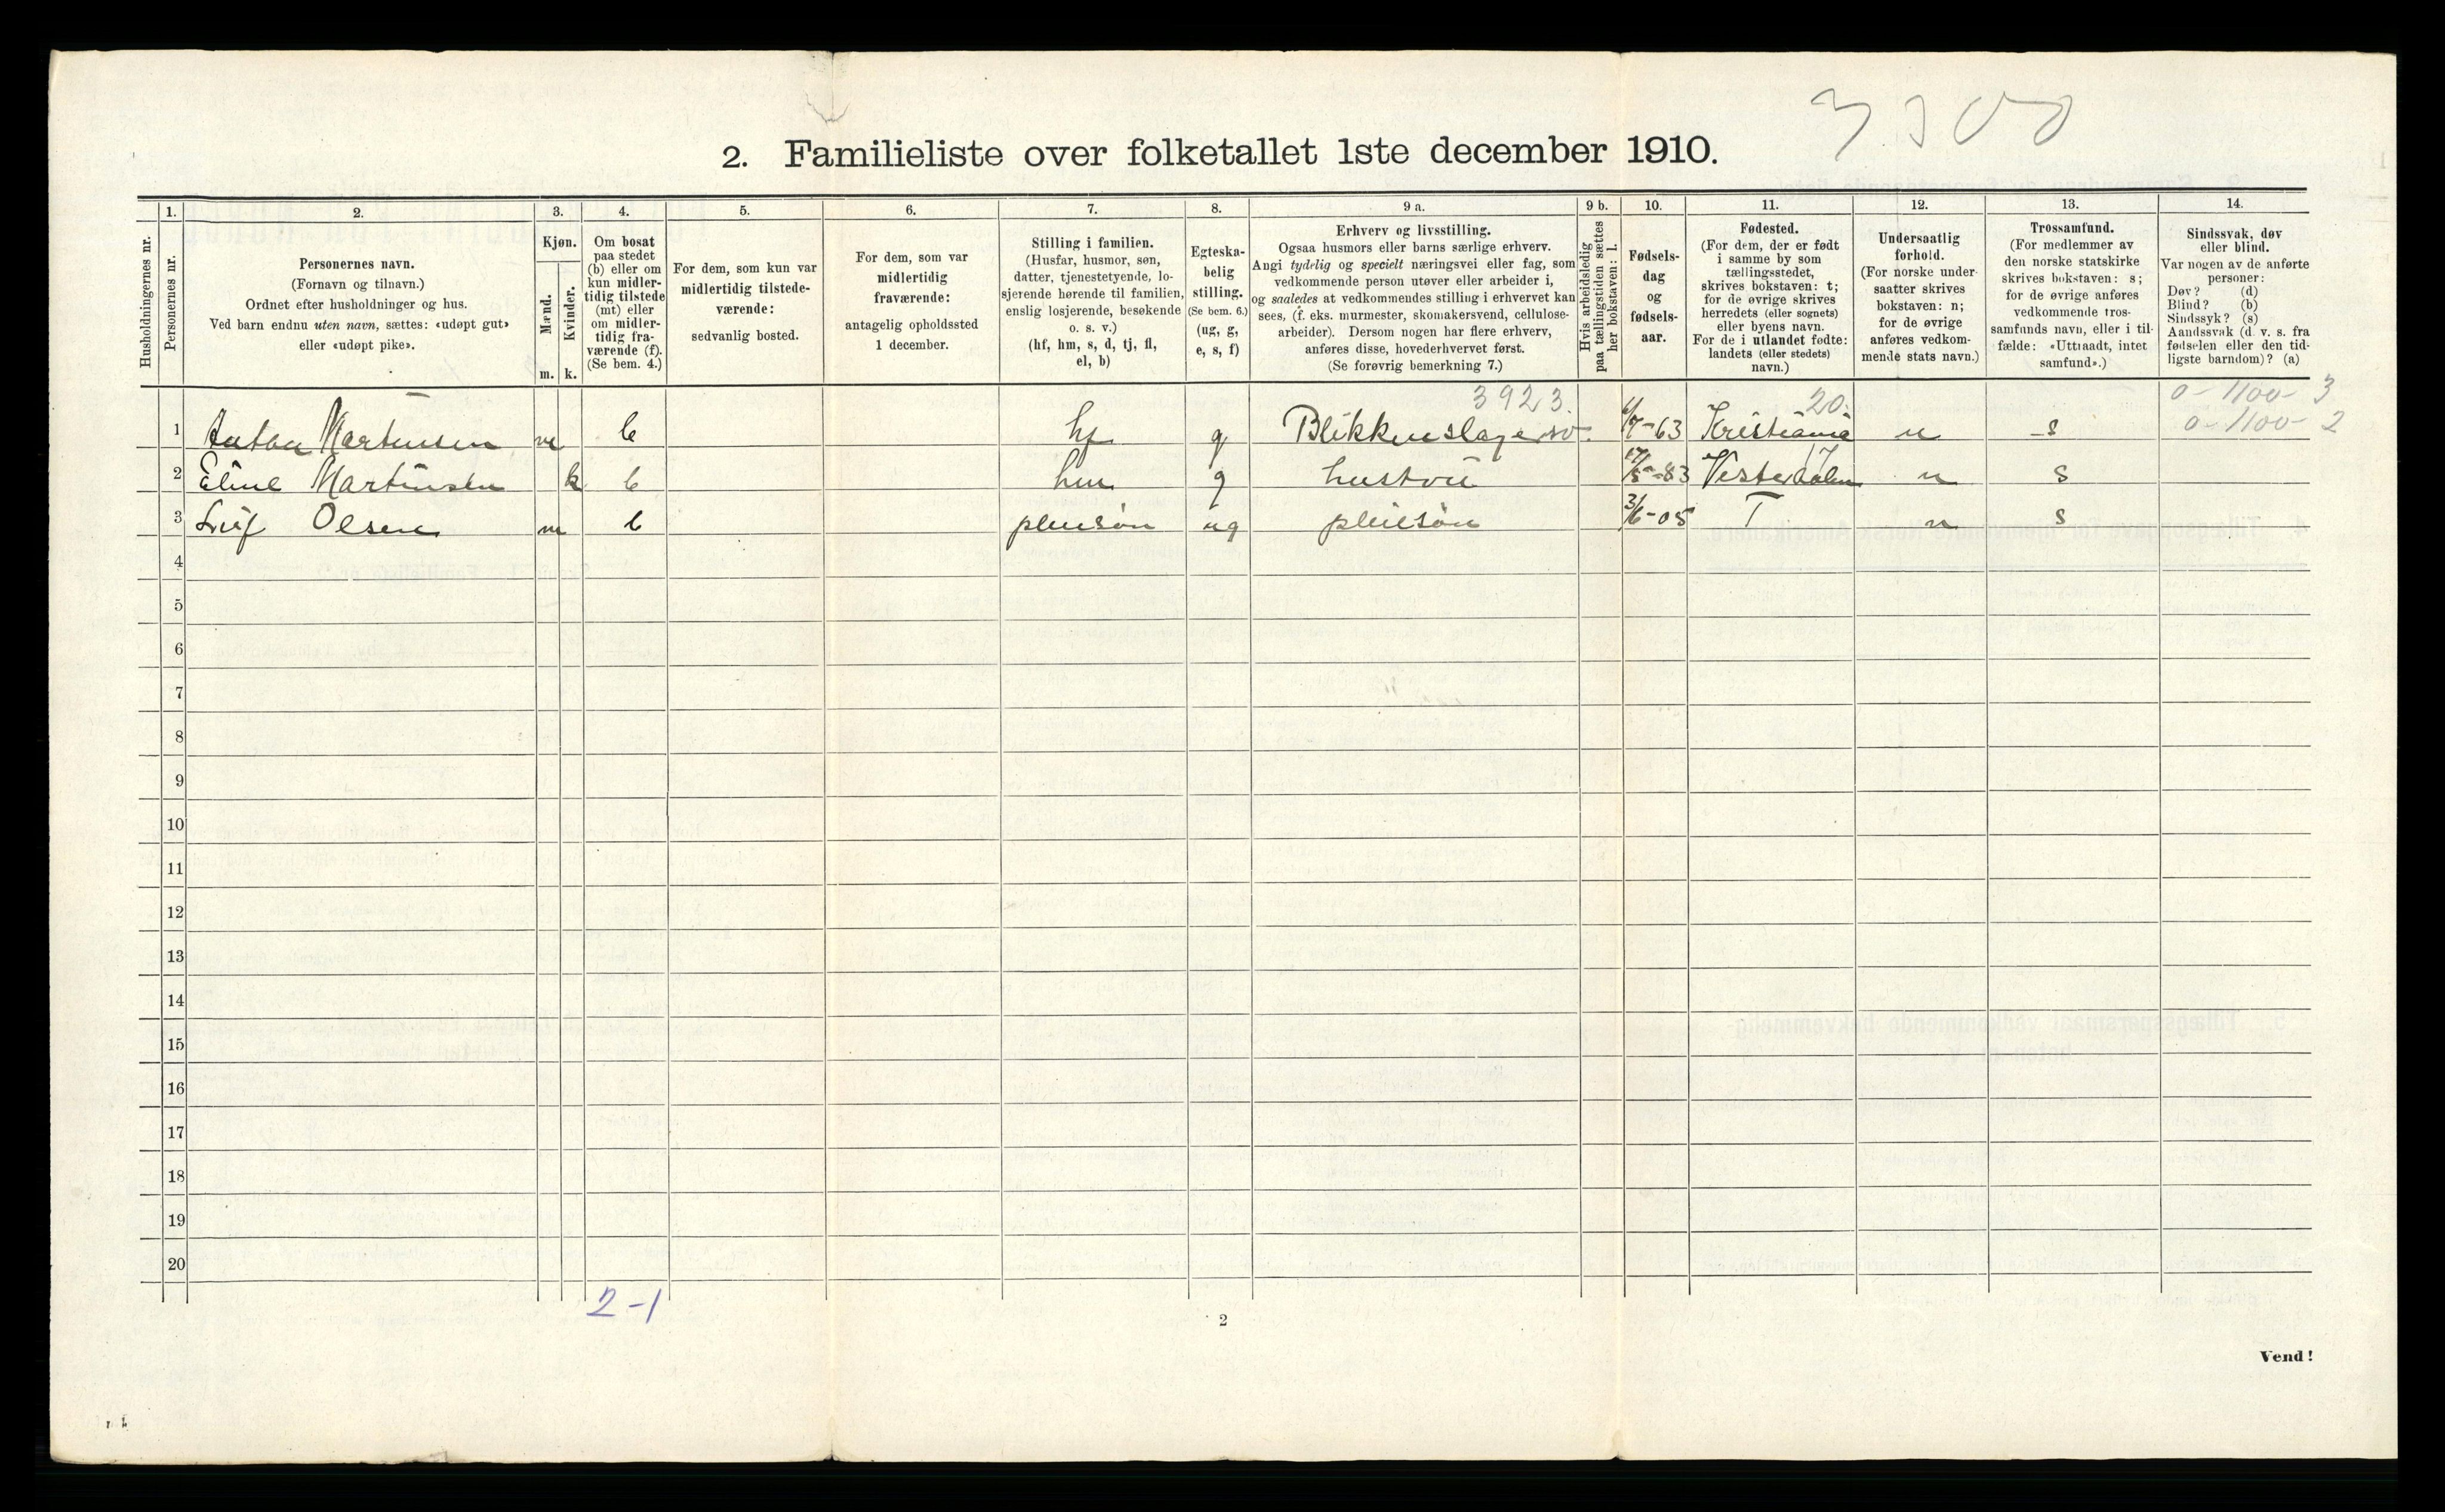 3300
2. Familieliste over folketallet 1ste december 1910.
Husholdningernes nr.
1.
Personernes nr.
2.
Personernes navn.
(Fornavn og tilnavn.)
Ordnet efter husholdninger og hus.
Ved barn endnu uten navn, sættes: «udøpt gut»
eller «udøpt pike».
3.
Kjøn.
Mænd.
Kvinder.
m. k.
4.
Om bosat
paa stedet
(b) eller om
kun midler-
tidig tilstede
(mt) eller
om midler-
tidig fra-
værende (f).
(Se bem. 4.)
5.
For dem, som kun var
midlertidig tilstede-
værende:
sedvanlig bosted.
6.
For dem, som var
midlertidig
fraværende:
antagelig opholdssted
1 december.
7.
Stilling i familien.
(Husfar, husmor, søn,
datter, tjenestetyende, lo-
sjerende hørende til familien,
enslig losjerende, besøkende
o. s. v.)
(hf, hm, s, d, tj, fl,
el, b)
8.
Egteska-
belig
stilling.
(Se bem. 6.)
(ug, g,
e, s, f)
9 a.
Erhverv og livsstilling.
Ogsaa husmors eller barns særlige erhverv.
Angi tydelig og specielt næringsvei eller fag, som
vedkommende person utøver eller arbeider i,
og saaledes at vedkommendes stilling i erhvervet kan
sees, (f. eks. murmester, skomakersvend, cellulose-
arbeider). Dersom nogen har flere erhverv,
anføres disse, hovederhvervet først.
(Se forøvrig bemerkning 7.)
9 b.
Hvis arbeidsledig
paa tællingstiden sættes
her bokstaven: l.
10.
Fødsels-
dag
og
fødsels-
aar.
11.
Fødested.
(For dem, der er født
i samme by som
tællingsstedet,
skrives bokstaven: t;
for de øvrige skrives
herredets (eller sognets)
eller byens navn.
For de i utlandet fødte:
landets (eller stedets)
navn.)
12.
Undersaatlig
forhold.
(For norske under-
saatter skrives
bokstaven: n;
for de øvrige
anføres vedkom-
mende stats navn.)
13.
Trossamfund.
(For medlemmer av
den norske statskirke
skrives bokstaven: s;
for de øvrige anføres
vedkommende tros-
samfunds navn, eller i til-
fælde: «Uttraadt, intet
samfund».)
14.
Sindssvak, døv
eller blind.
Var nogen av de anførte
personer:
Døv? (d)
Blind? (b)
Sindssyk? (s)
Aandssvak (d. v. s. fra
fødselen eller den tid-
ligste barndom)? (a)
3923. 20. 0-1100-3
1 Anton Martinsen m b hf g Blikkenslagersv. /7-63 Kristiania n s 0-1100-2
2 Eline Martinsen k b hm g hustru 17/5-83 n s
3 Leif Olsen m b pleiesøn ug pleiesøn 3/6-05 T n s
4
5
6
7
8
9
10
11
12
13
14
15
16
17
18
19
20
2-1
2
Vend!